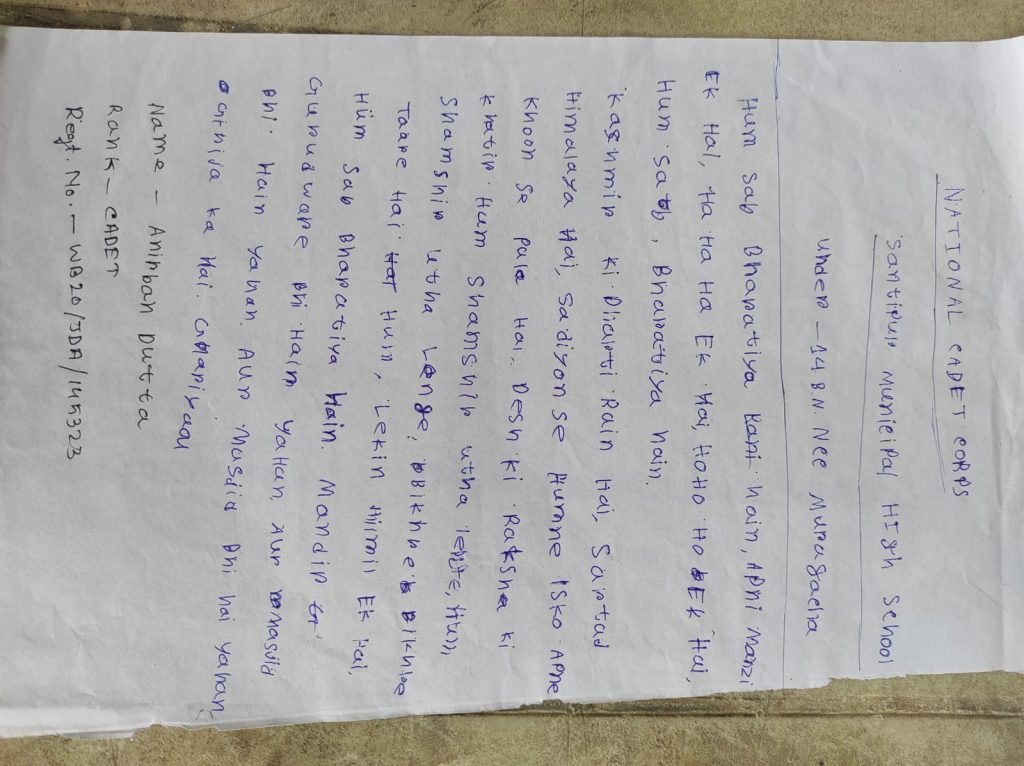 NATIONAL CADET CORPS
Santipur Municipal HIgh School
under - 14 B.N. Nee Muragacha
Hum Sab Bharatiya Rani hain, Apni Manzi
Ek Hal, Ha Ha Ha EK Hai, HoHo Ho Ek Hai,
Hum Sab, Bharatiya hain.
Kashmir ki Dharti Rain Hai, Sartad
Himalaya Hai, Sadiyon se Humne Isko Apne
Khoon Se Pala Hai. Desh ki Raksha ki
Khatir Hum Shamshir utha lente, Hum,
Shamshir utha Lenge; Bikhre Bikhre
Taare Hai Hum, Lekin Hilmil Ek Hai,
Hum Sab Bharatiya Hain. Mandir
Gurudware Bhi Haim Yahan Aur Masjid
Bhi. Hain Yahan. Aur Masjid Bhi hai Yahan
Girhija ka Hai. Ghariyaal
Name - Anirban Dutta
Rank - CADET
Regt. No. - WB20/JDA/145323